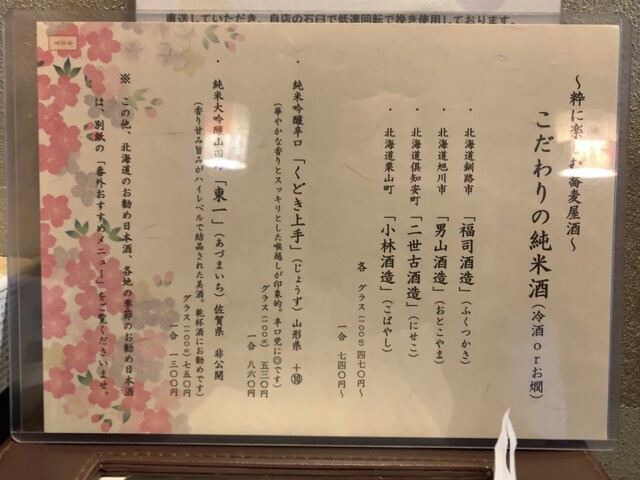 直送していただき、自店の石臼で低速回転で挽き使用しております。
～粋に楽しむお蕎麦屋酒～
こだわりの純米酒(冷酒orお燗)
・北海道釧路市 「福司酒造」(ふくつかさ)
・北海道旭川市 「男山酒造」(おとこやま)
・北海道倶知安町 「二世古酒造」(にせこ)
・北海道栗山町 「小林酒造」(こばやし)
各 グラス(100㏄) 四七〇円～
一合 七四〇円～
・純米吟醸辛口「くどき上手」(じょうず)山形県 +⑩
(華やかな香りとスッキリとした喉越しが印象的。辛口党に◎です)
グラス(100㏄) 五三〇円
一合 八六〇円
・純米大吟醸山田錦「東一」(あづまいち)佐賀県 非公開
(香り甘み旨みがハイレベルで結晶された美酒。乾杯酒にお勧めです)
グラス(100㏄)七五〇円
一合 一三〇〇円
※ この他、北海道のお勧め日本酒、各地の季節のお勧め日本酒
は、別紙の「番外おすすめメニュー」をご覧くださいませ。